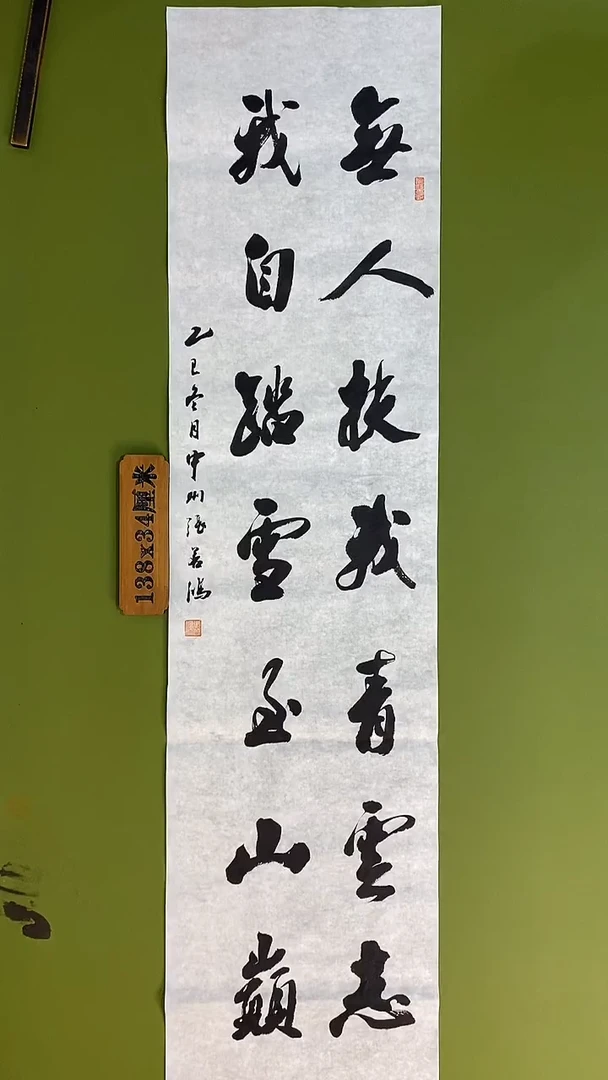 無人扶我青雲志
我自踏雪至山巔
乙巳冬月中州張善鴻
138x34厘米